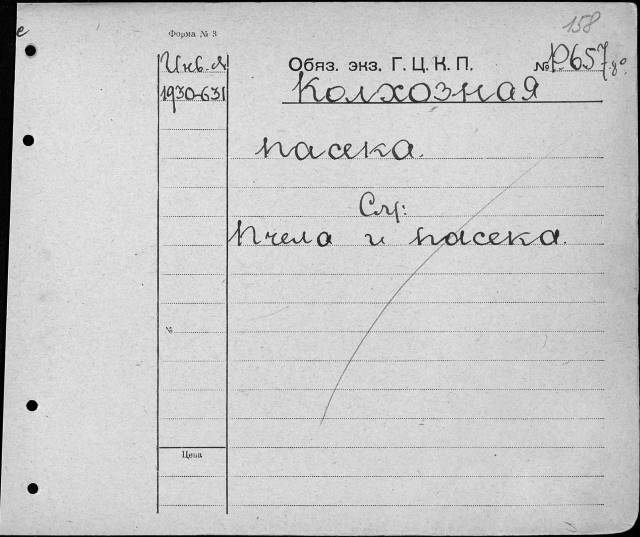 158
Форма № 3
Инв. №
Обяз. экз. Г. Ц. К. П. № Р657
1930-631
Колхозная
пасека.
См:
Пчела и пасека.
№
Цена